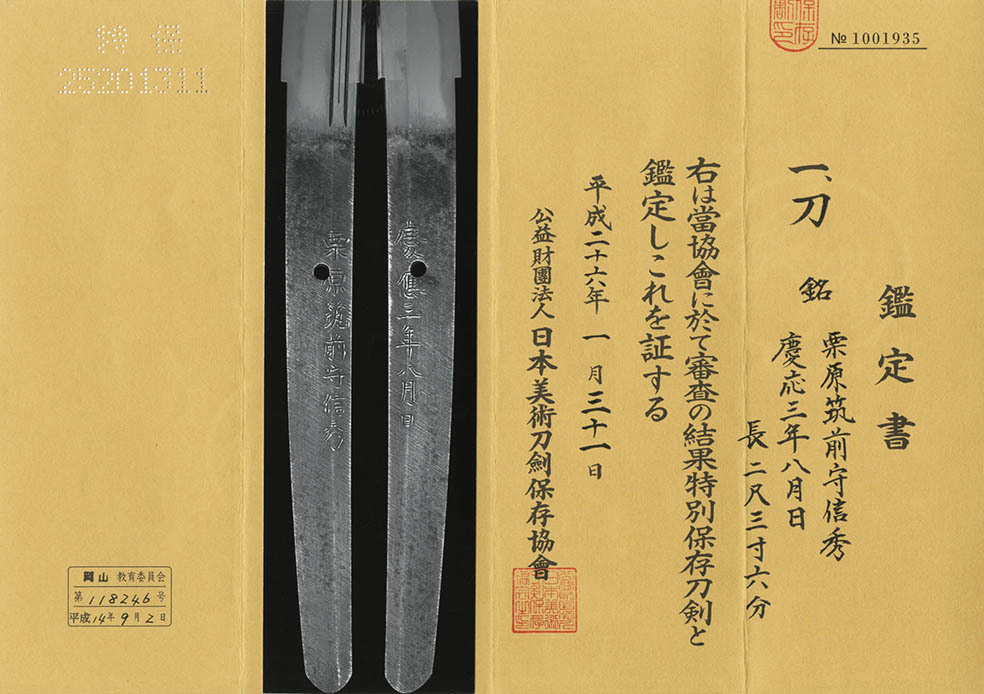 保存
割印
№ 1001935
鑑定書
一、刀 銘 栗原筑前守信秀
慶応三年八月日
長二尺三寸六分
右は當協會に於て審査の結果特別保存刀剣と
鑑定しこれを証する
平成二十六年一月三十一日
公益財團法人日本美術刀劍保存協會
慶應三年八月日
栗原筑前守信秀
特保
25201311
岡山 教育委員会
第118246号
平成14年9月2日